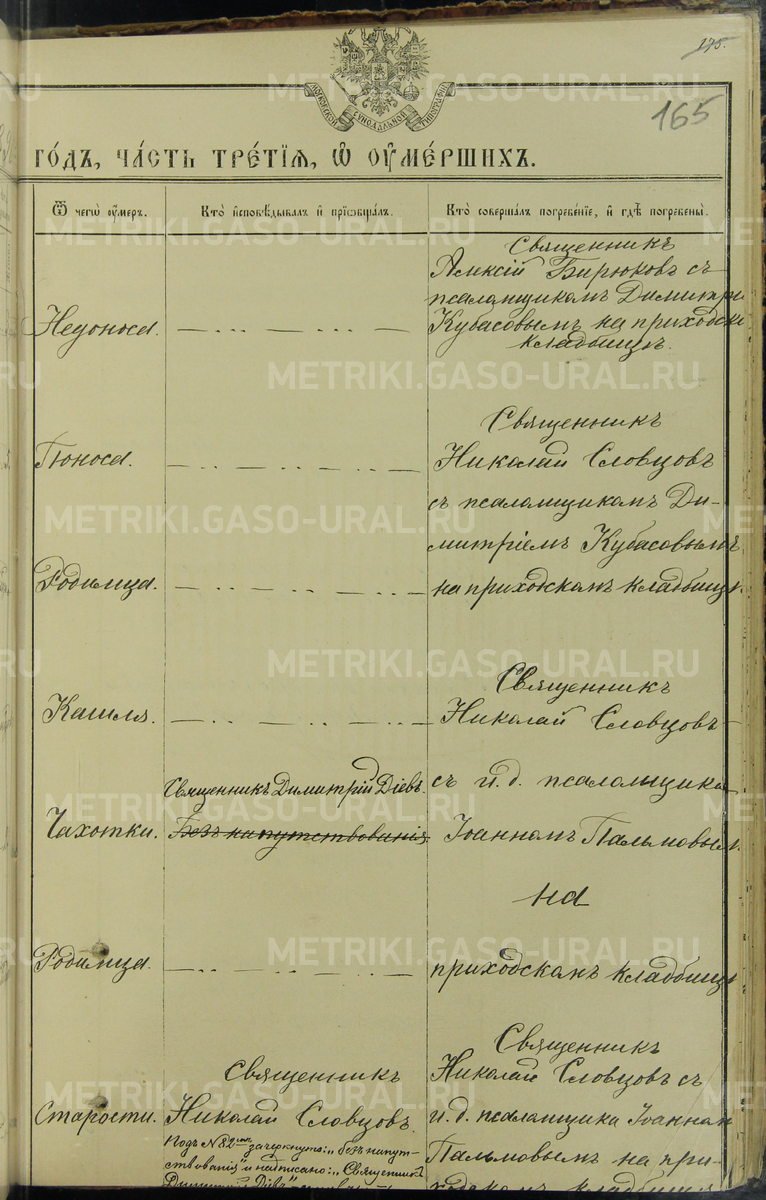 175.
165
МОСКОВСКОЙ СѴНОДАЛЬНОЙ ТИПОГРАФІИ
ГО́ДЪ, ЧА́СТЬ ТРЕ́ТІѦ, Ѡ҆ ОУ҆МЕ́РШИХЪ.
Ѿ чегѡ̀ ᲂу҆́меръ.
Кто̀ и҆сповѣ́дывалъ и҆ прїѡбща́лъ.
Кто̀ соверша́лъ погребе́нїе, и҆ гдѣ̀ погребены̀.
Недоноса.
Священникъ
Алексій Бирюковъ съ
псаломщикомъ Димитрі
Кубасовымъ на приходско
кладбищѣ.
Поноса.
Священникъ
Николай Словцовъ
съ псаломщикомъ Ди-
митріемъ Кубасовымъ
Родимца.
на приходскомъ кладбищѣ.
Кашля.
Священникъ
Николай Словцовъ
Чахотки.
Священникъ Димитрій Діевъ.
Безъ напутствованія.
съ и. д. псаломщика
Іоанномъ Пальмовым
на
Родимца.
приходскомъ кладбищѣ
Старости.
Священникъ
Николай Словцовъ.
Подъ №82мъ зачеркнуто: „безъ напут-
ствованія" и надписано: „Священникъ
Димитрій Діевъ"
Священникъ
Николай Словцовъ съ
и. д. псаломщика Іоанном
Пальмовымъ на при-
ходскомъ кладбищѣ
METRIKI.GASO-URAL.RU